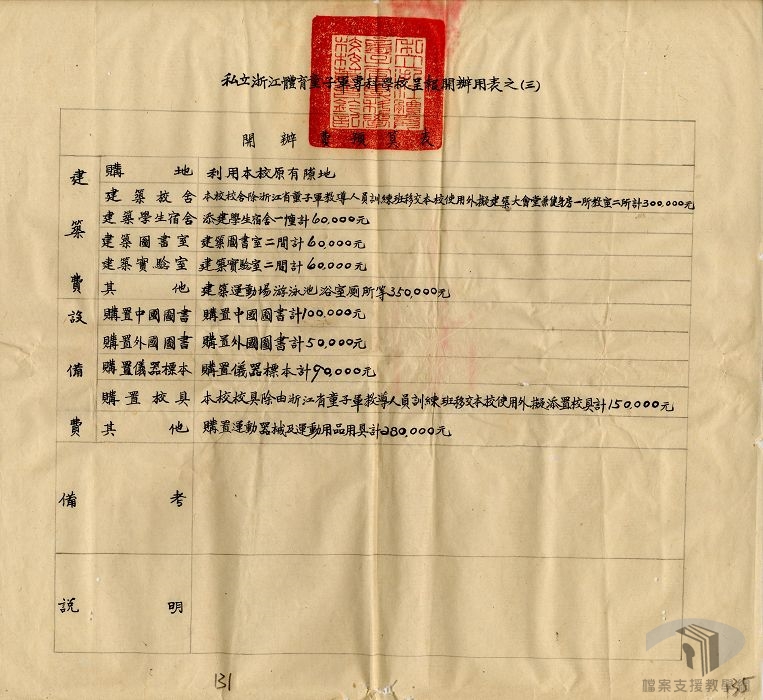 私立浙江體育童子軍專科學校呈報開辦用表之(三)
開辦費預算表
建築費
購地 利用本校原有隙地
建築校舍 本校校舍除浙江省童子軍教導人員訓練班移交本校使用外擬建築大會堂兼健身房一所教室二所計300,000元
建築學生宿舍 添建學生宿舍一幢計60,000元
建築圖書室 建築圖書室二間計60,000元
建築實驗室 建築實驗室二間計60,000元
其他 建築運動場游泳池浴室厠所等350,000元
設備費
購置中國圖書 購置中國圖書計100,000元
購置外國圖書 購置外國圖書計50,000元
購置儀器標本 購置儀器標本計90,000元
購置校具 本校校具除由浙江省童子軍教導人員訓練班移交本校使用外擬添置校具計150,000元
其他 購置運動器械及運動用品用具計280,000元
備考
說明
131
135
檔案支援教學網